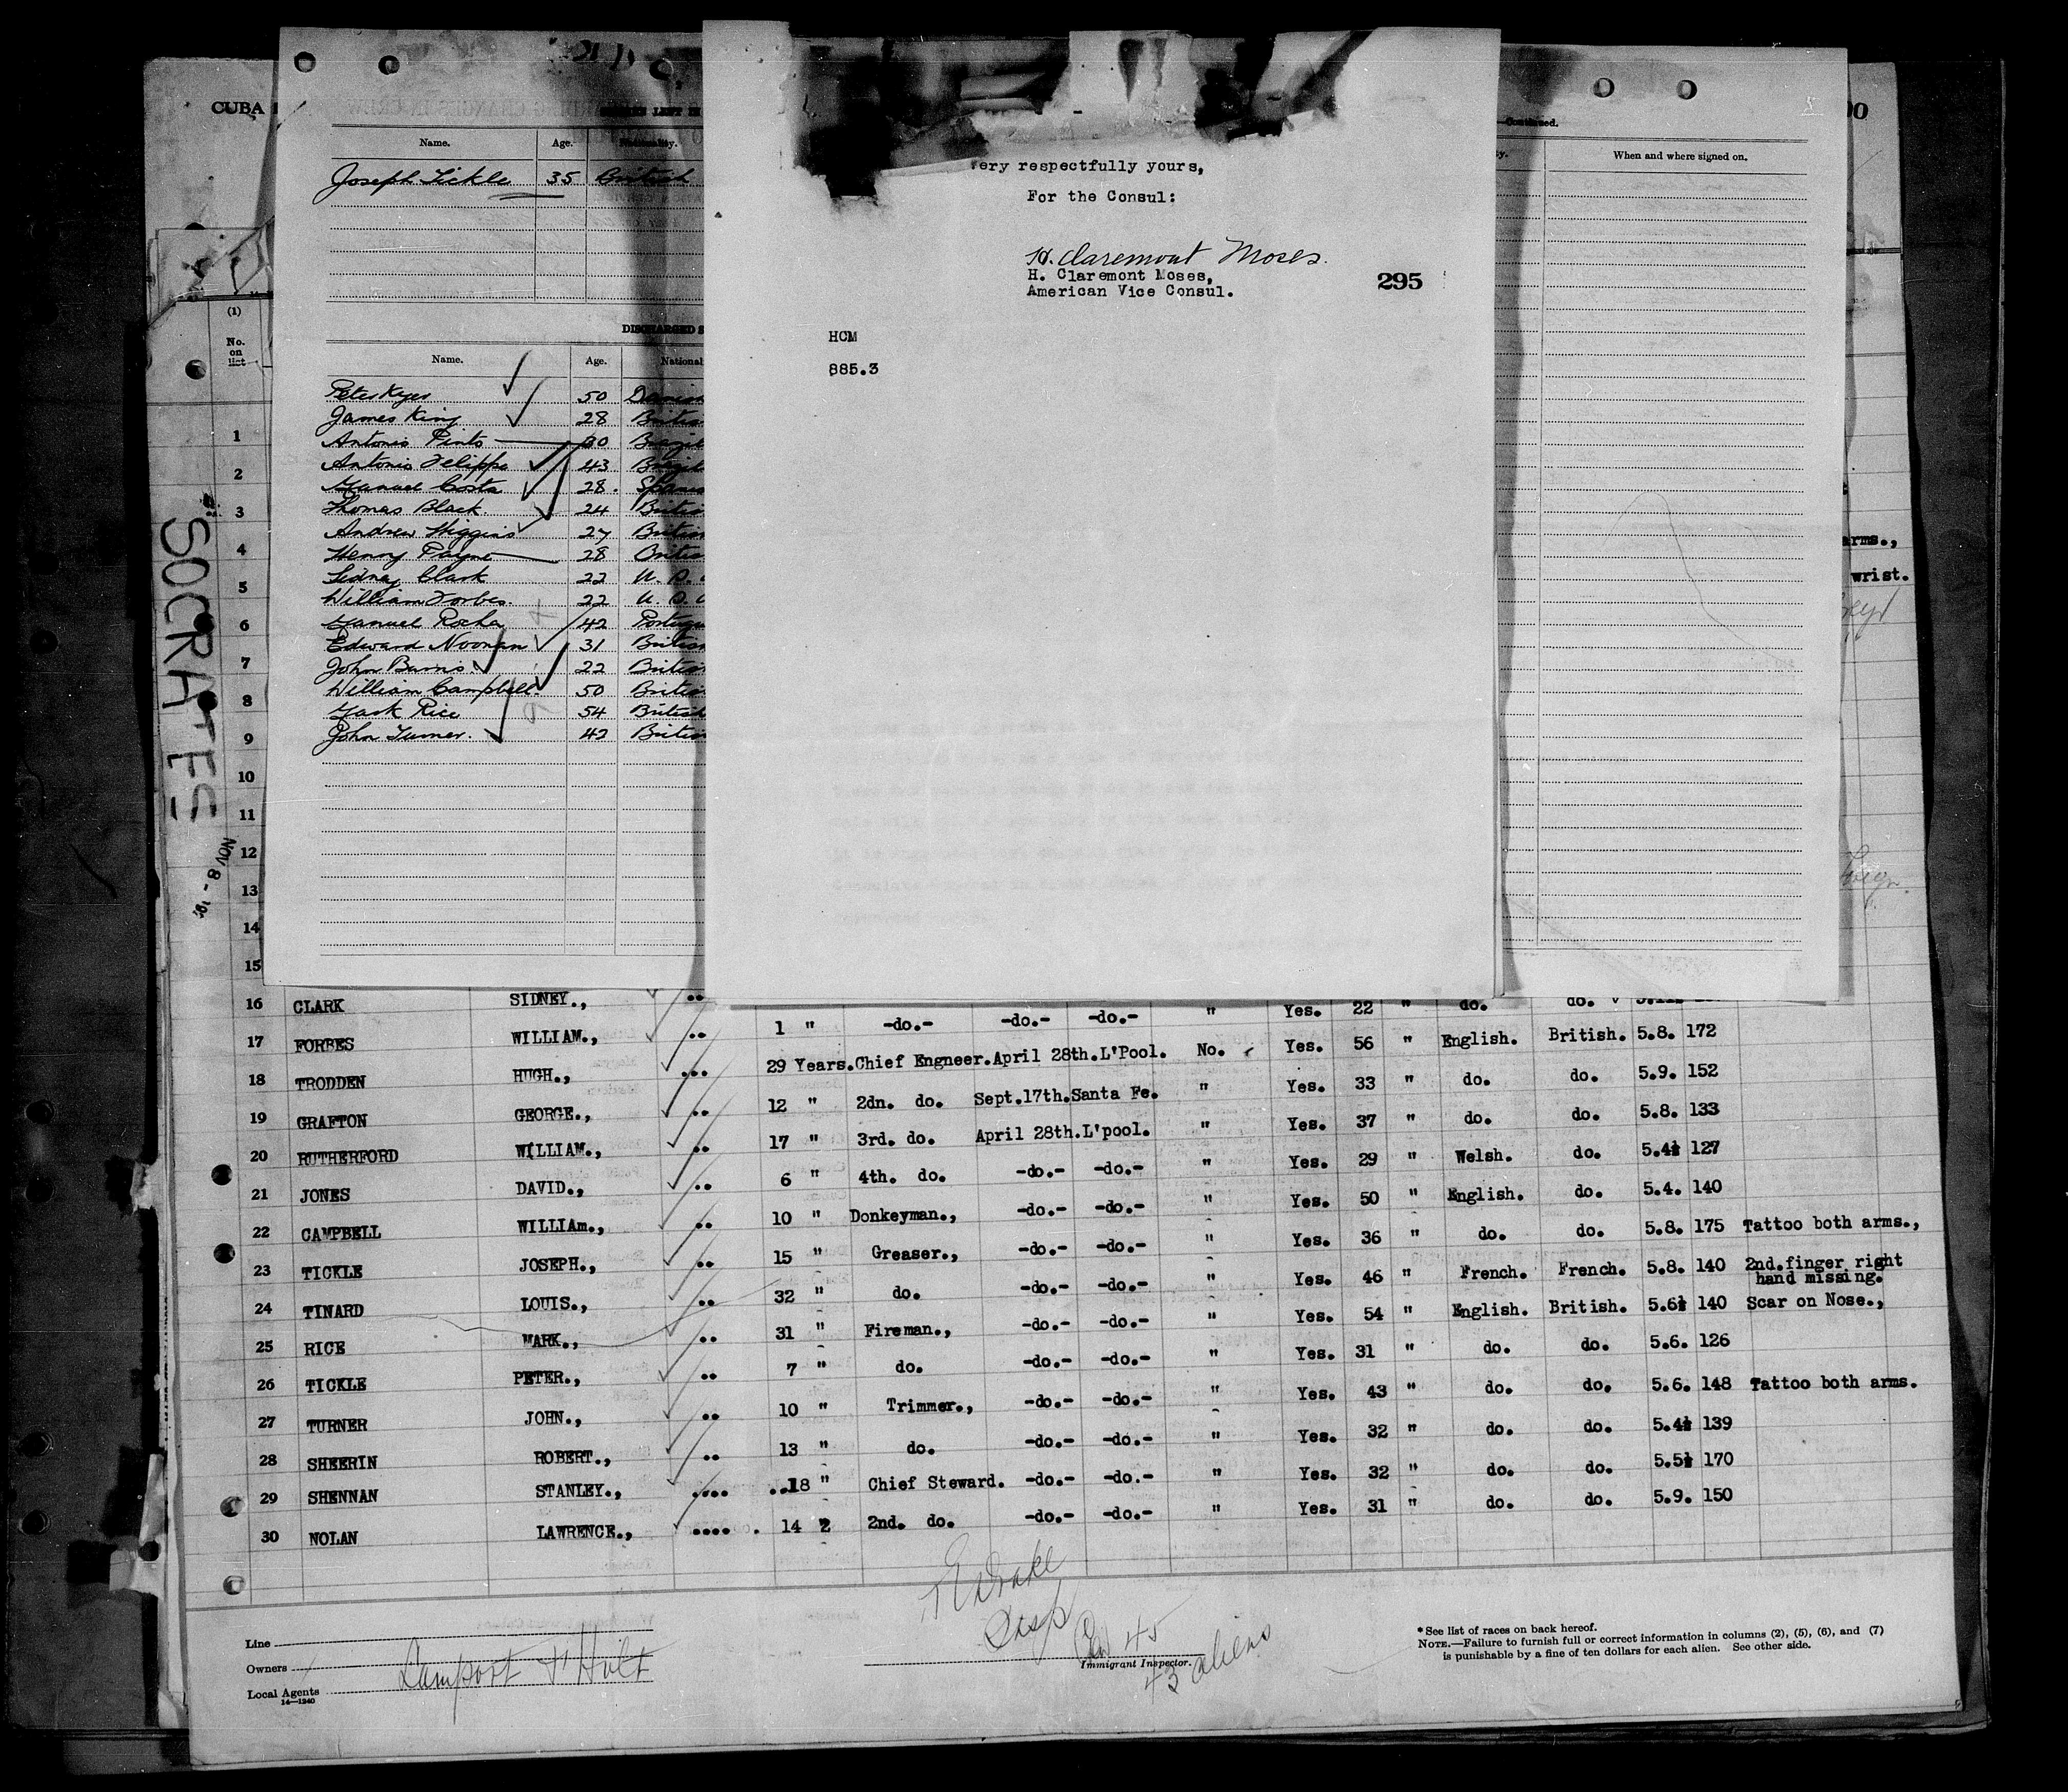 CUBA
Name. Age. Nationality.
Joseph Tickle 35 British
DISCHARGED
Name. Age.
Peter Keyes 50 Danish
James King 28
Antonio Pinto 30
Antonio Felippe 43
Manuel Costa 28.
Thomas Black. 24
Andrew Higgins 27
Henry Payne 28
Sidney Clark 22 U. S.
William Forbes. 22 U. S.
Manuel Rocha 42
Edward Noonan 31
John Burns. 22
William Campbell. 50
Mark Rice 54
John Turner. 42
Very respectfully yours,
For the Consul:
H. Claremont Moses.
H. Claremont Moses,
American Vice Consul.
295
HCM
885.3
—Continued.
When and where signed on.
arms.,
wrist.
(1)
No.
on
list
1
2
3
4
5
6
7
8
9
10
11
12
13
14
15
SOCRATES
NOV 8 - 191
16 CLARK SIDNEY., Yes. 22 " do. do.
17 FORBES WILLIAM., 1 " -do.- -do.- -do.- " Yes. 56 " English. British. 5.8. 172
18 TRODDEN HUGH., 29 Years. Chief Engneer. April 28th. L'Pool. No. Yes. 33 " do. do. 5.9. 152
19 GRAFTON GEORGE., 12 " 2dn. do. Sept.17th. Santa Fe. " Yes. 37 " do. do. 5.8. 133
20 RUTHERFORD WILLIAM., 17 " 3rd. do. April 28th. L'pool. " Yes. 29 " Welsh. do. 5.4½ 127
21 JONES DAVID., 6 " 4th. do. -do.- -do.- " Yes. 50 " English. do. 5.4. 140
22 CAMPBELL WILLIAm., 10 " Donkeyman., -do.- -do.- " Yes. 36 " do. do. 5.8. 175 Tattoo both arms.,
23 TICKLE JOSEPH., 15 " Greaser., -do.- -do.- " Yes. 46 " French. French. 5.8. 140 2nd.finger right
hand missing.
24 TINARD LOUIS., 32 " do. -do.- -do.- " Yes. 54 " English. British. 5.6½ 140 Scar on Nose.,
25 RICE MARK., 31 " Fireman., -do.- -do.- " Yes. 31 " do. do. 5.6. 126
26 TICKLE PETER., 7 " do. -do.- -do.- " Yes. 43 " do. do. 5.6. 148 Tattoo both arms.
27 TURNER JOHN., 10 " Trimmer., -do.- -do.- " Yes. 32 " do. do. 5.4½ 139
28 SHEERIN ROBERT., 13 " do. -do.- -do.- " Yes. 32 " do. do. 5.5½ 170
29 SHENNAN STANLEY., 18 " Chief Steward. -do.- -do.- " Yes. 31 " do. do. 5.9. 150
30 NOLAN LAWRENCE., 14 2 2nd. do. -do.- -do.-
Line
Owners Lamport & Holt
Local Agents
14—1240
Insp
45
Immigrant Inspector.
43 aliens
* See list of races on back hereof.
NOTE.—Failure to furnish full or correct information in columns (2), (5), (6), and (7)
is punishable by a fine of ten dollars for each alien. See other side.